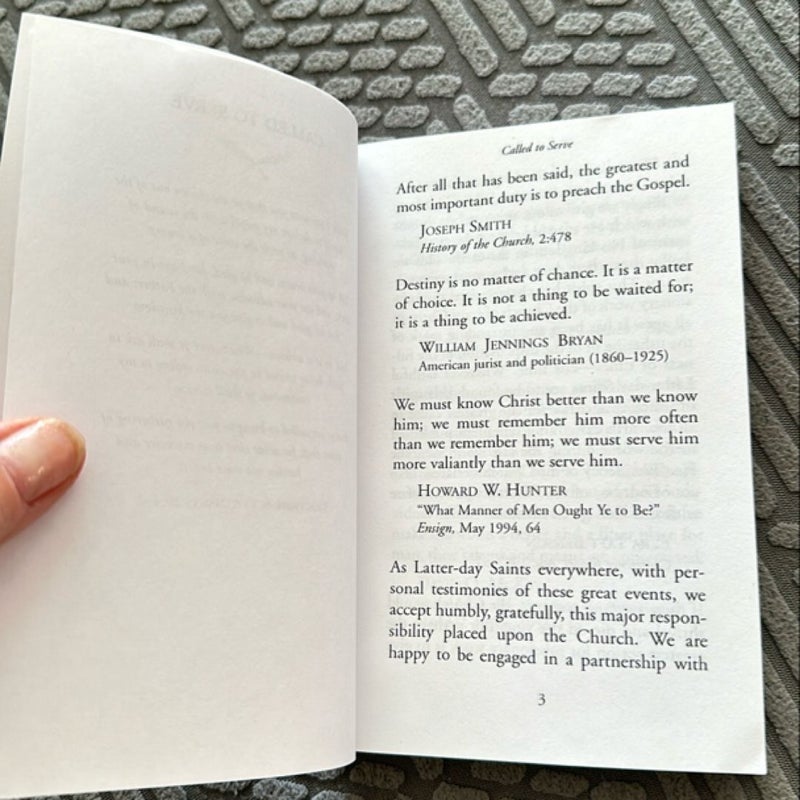 Called to Serve
After all that has been said, the greatest and
most important duty is to preach the Gospel.
JOSEPH SMITH
History of the Church, 2:478
Destiny is no matter of chance. It is a matter
of choice. It is not a thing to be waited for;
it is a thing to be achieved.
WILLIAM JENNINGS BRYAN
American jurist and politician (1860–1925)
We must know Christ better than we know
him; we must remember him more often
than we remember him; we must serve him
more valiantly than we serve him.
HOWARD W. HUNTER
“What Manner of Men Ought Ye to Be?”
Ensign, May 1994, 64
As Latter-day Saints everywhere, with per-
sonal testimonies of these great events, we
accept humbly, gratefully, this major respon-
sibility placed upon the Church. We are
happy to be engaged in a partnership with
3